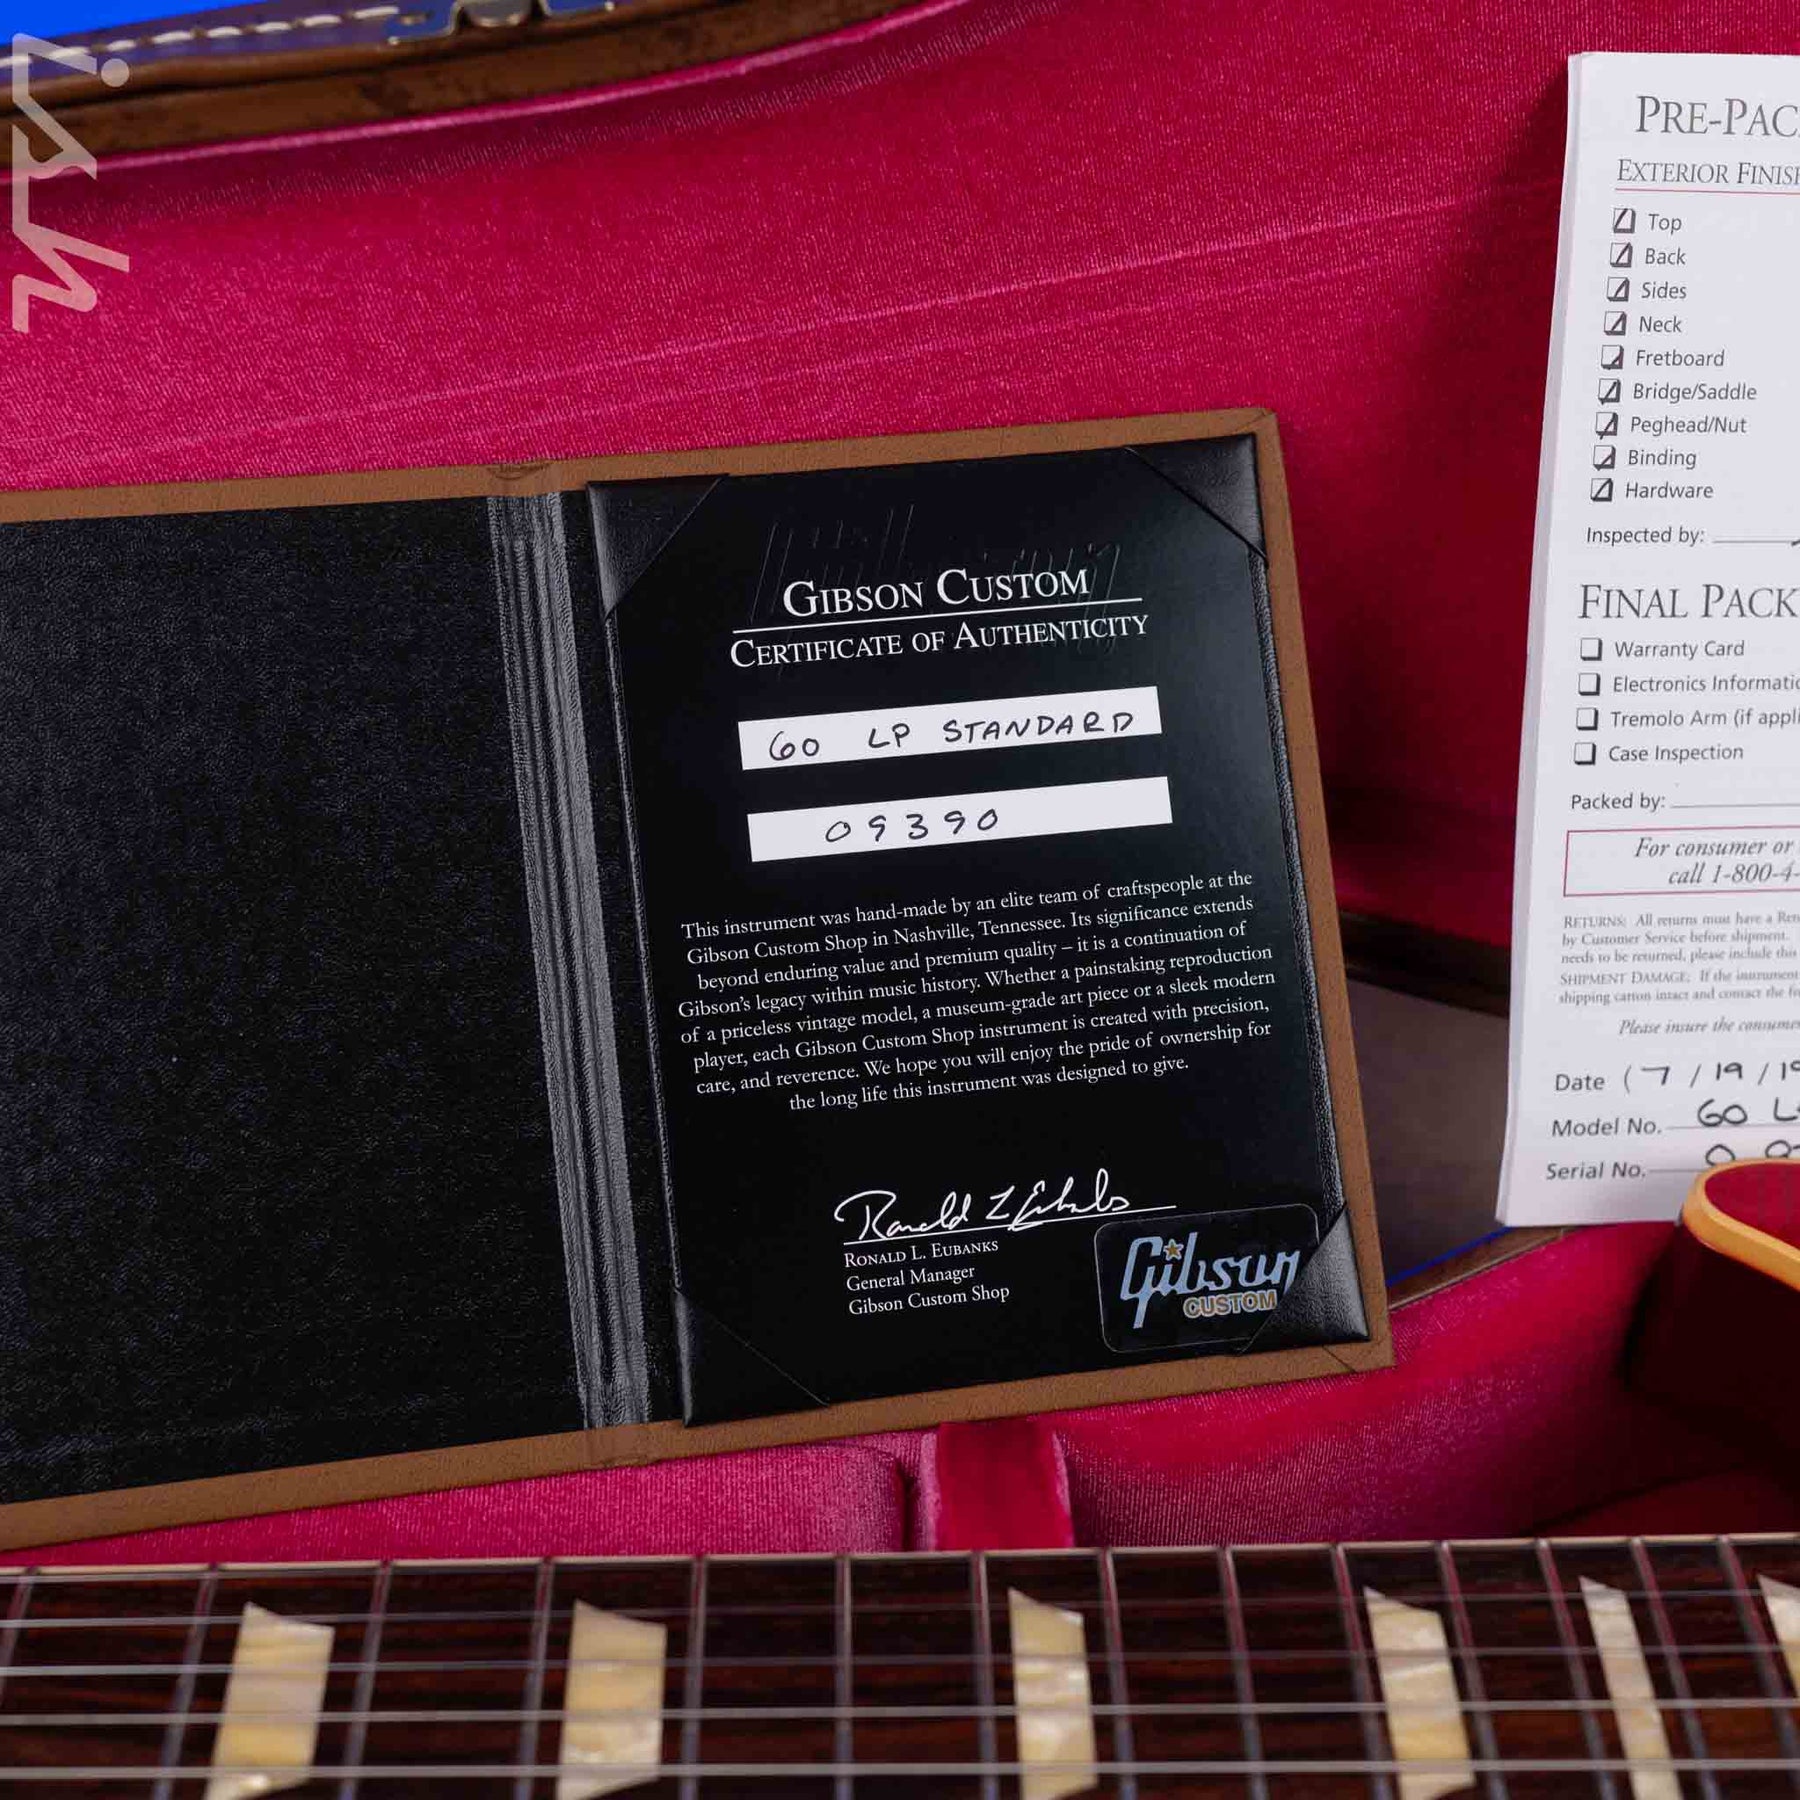 ish
GIBSON CUSTOM
CERTIFICATE OF AUTHENTICITY
60 LP STANDARD
09390
This instrument was hand-made by an elite team of craftspeople at the
Gibson Custom Shop in Nashville, Tennessee. Its significance extends
beyond enduring value and premium quality – it is a continuation of
Gibson's legacy within music history. Whether a painstaking reproduction
of a priceless vintage model, a museum-grade art piece or a sleek modern
player, each Gibson Custom Shop instrument is created with precision,
care, and reverence. We hope you will enjoy the pride of ownership for
the long life this instrument was designed to give.
Ronald L Eubanks
RONALD L. EUBANKS
General Manager
Gibson Custom Shop
Gibson
CUSTOM
PRE-PAC
EXTERIOR FINIS
Top
Back
Sides
Neck
Fretboard
Bridge/Saddle
Peghead/Nut
Binding
Hardware
Inspected by:
FINAL PACK
Warranty Card
Electronics Informatio
Tremolo Arm (if appli
Case Inspection
Packed by:
For consumer or
call 1-800-4-
RETURNS: All returns must have a Ret
by Customer Service before shipment.
needs to be returned, please include this
SHIPMENT DAMAGE: If the instrument
shipping carton intact and contact the
Please insure the consumer
Date (7 / 19 / 19
Model No. 60 L
Serial No. 0